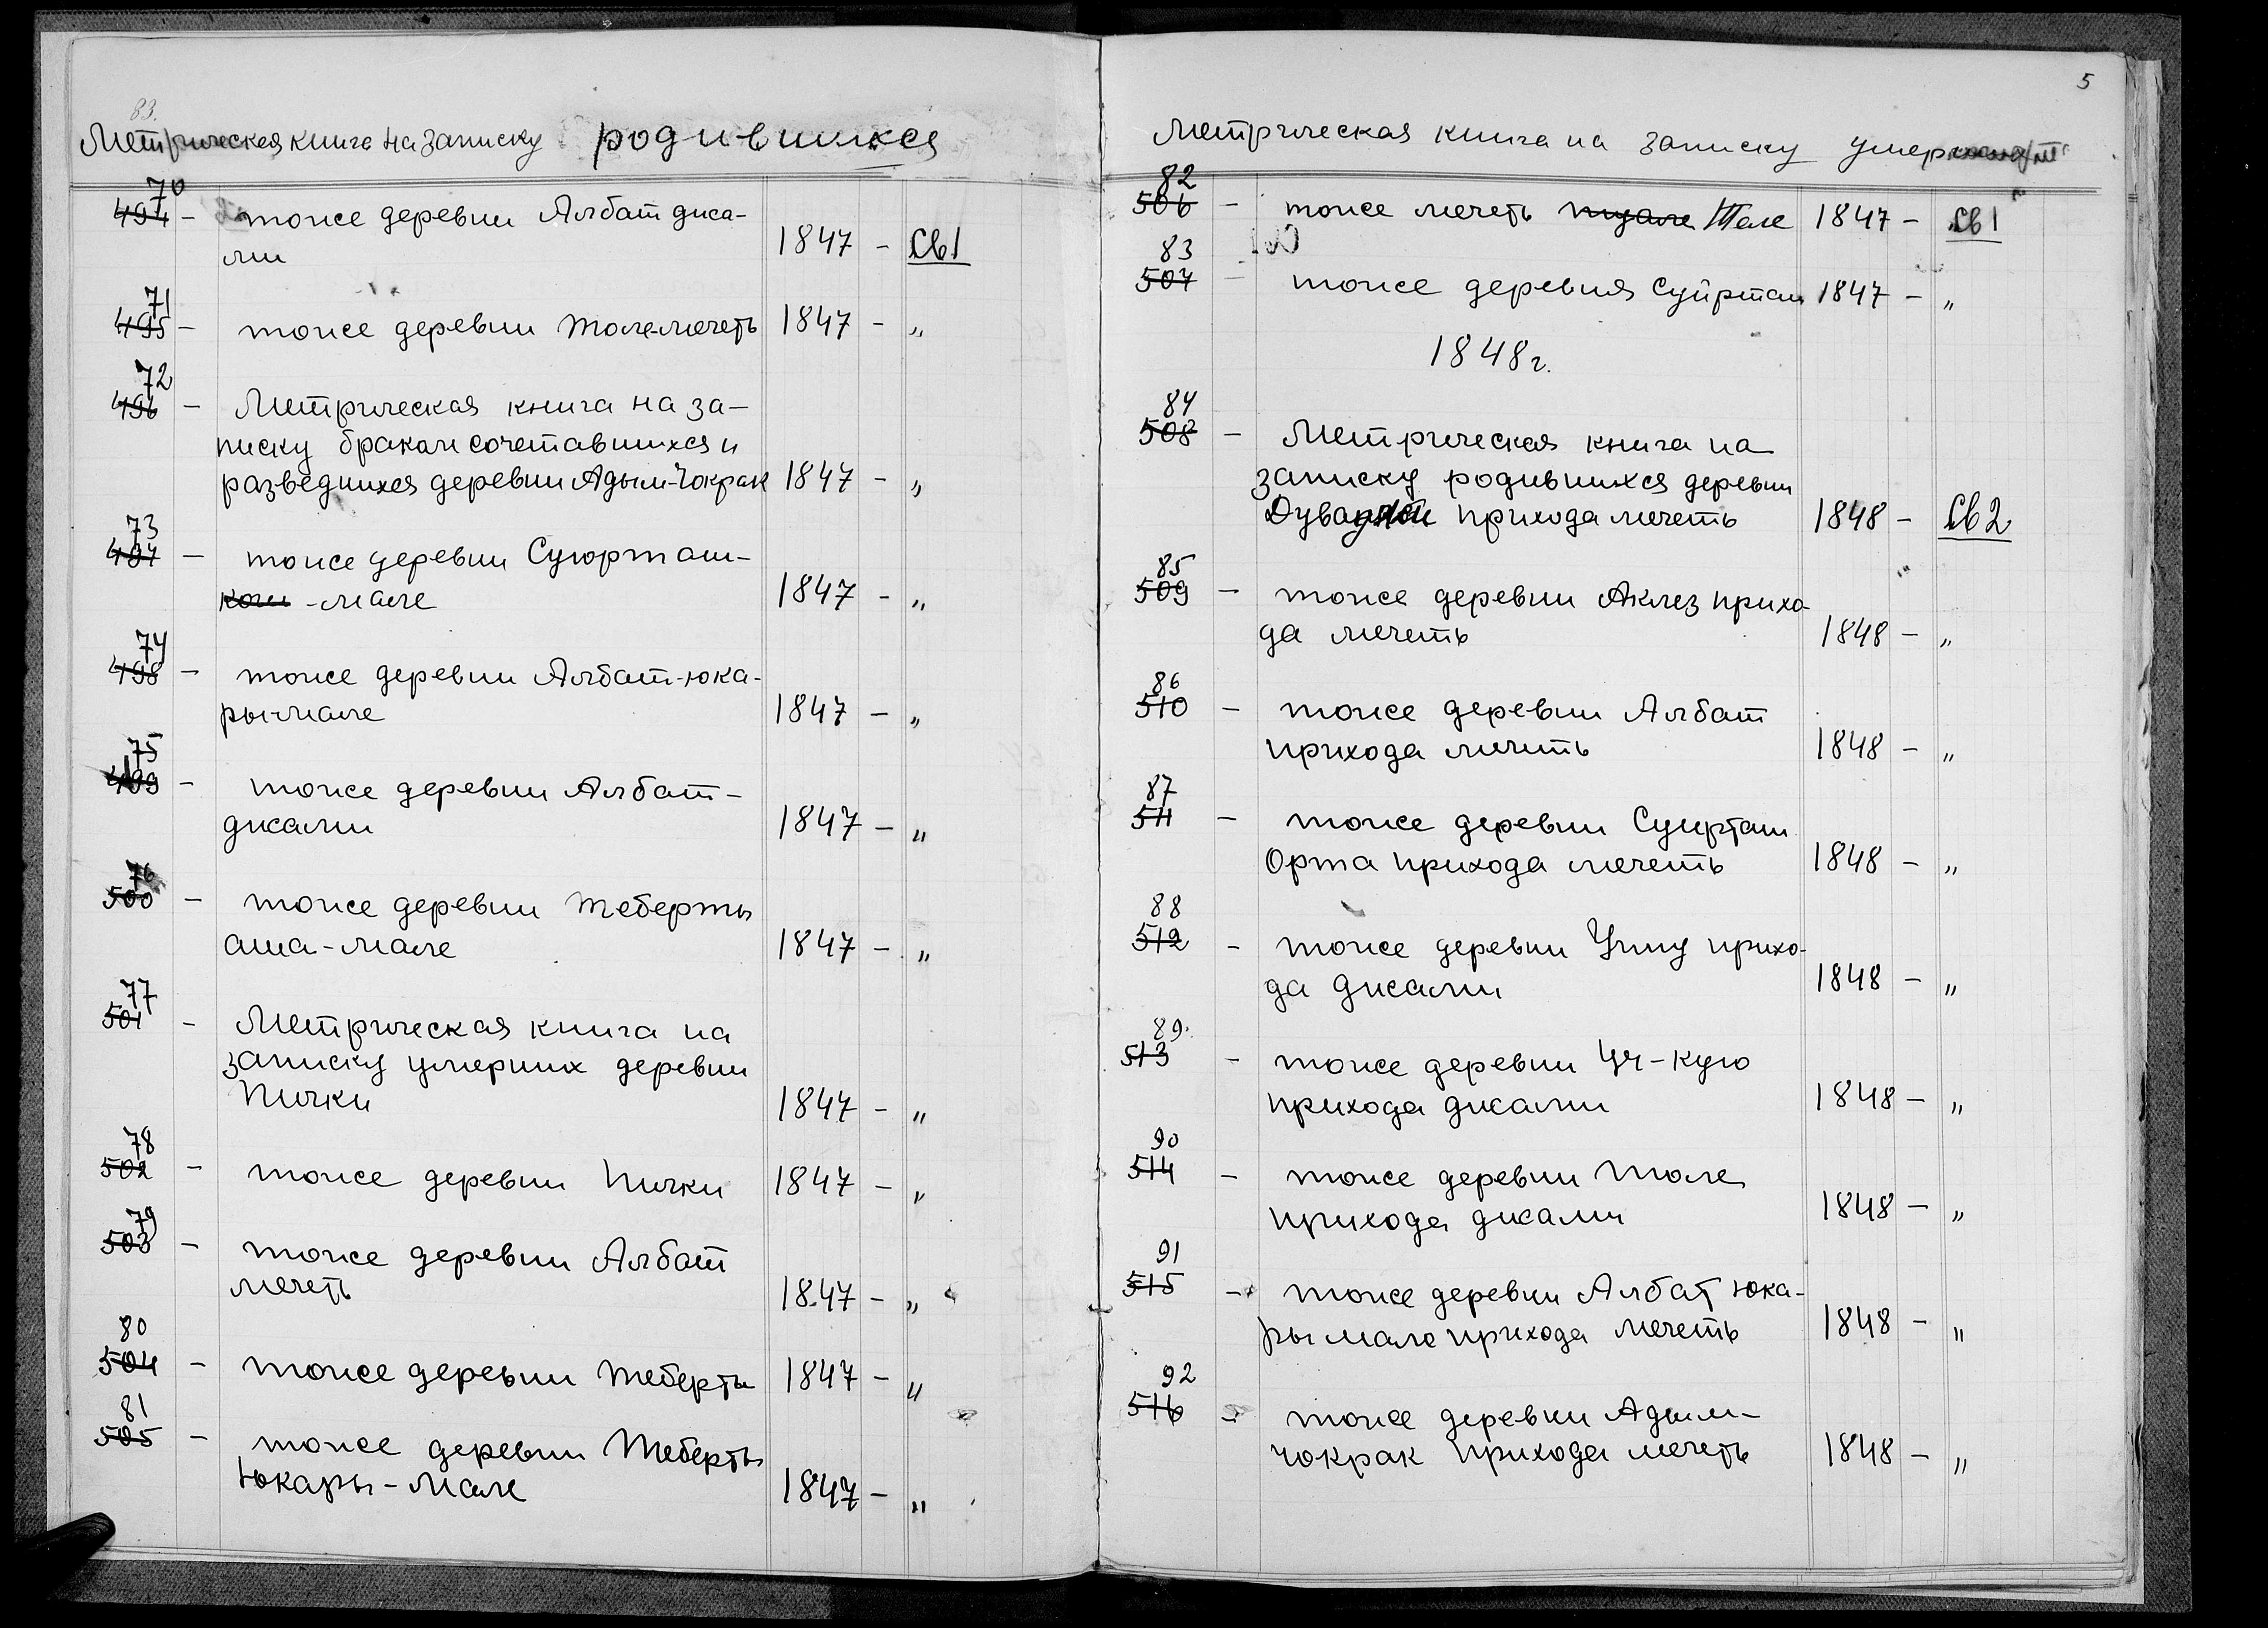 83.
Метрическая книга на записку родившихся
70
494 - тоже деревни Албат джа-
ми 1847 - Св1
71
495 - тоже деревни Толе-мечеть 1847 - "
72
496 - Метрическая книга на за-
писку браком сочетавшихся и
разведшихся деревни Адым-Чокрак 1847 - "
73
497 - тоже деревни Суюрташ-
-мале 1847 - "
74
498 - тоже деревни Албат-юка-
ры-мале 1847 - "
75
499 - тоже деревни Албат-
джами 1847 - "
76
500 - тоже деревни Теберты
аша-мале 1847 - "
77
501 - Метрическая книга на
записку умерших деревни
Пички 1847 - "
78
502 - тоже деревни Пички 1847 - "
79
503 - тоже деревни Албат
мечеть 1847 - "
80
504 - тоже деревни Теберты 1847 - "
81
505 - тоже деревни Теберты
Юкары-Мале 1847 - "
5
Метрическая книга на записку
82
506 - тоже мечеть Толе 1847 - Св1
83
507 - тоже деревня Суйрташ 1847 - "
1848г.
84
508 - Метрическая книга на
записку родившихся деревни
прихода мечеть 1848 - Св2
85
509 - тоже деревни Аклез прихо-
да мечеть 1848 - "
86
510 - тоже деревни Албат
прихода мечеть 1848 - "
87
511 - тоже деревни Суирташ
Орта прихода мечеть 1848 - "
88
512 - тоже деревни прихо-
да джами 1848 - "
89.
513 - тоже деревни Уч-кую
прихода джами 1848 - "
90
514 - тоже деревни Толе
прихода джами 1848 - "
91
515 - тоже деревни Албат юка-
ры мале прихода мечеть 1848 - "
92
516 - тоже деревни Адым-
чокрак прихода мечеть 1848 - "